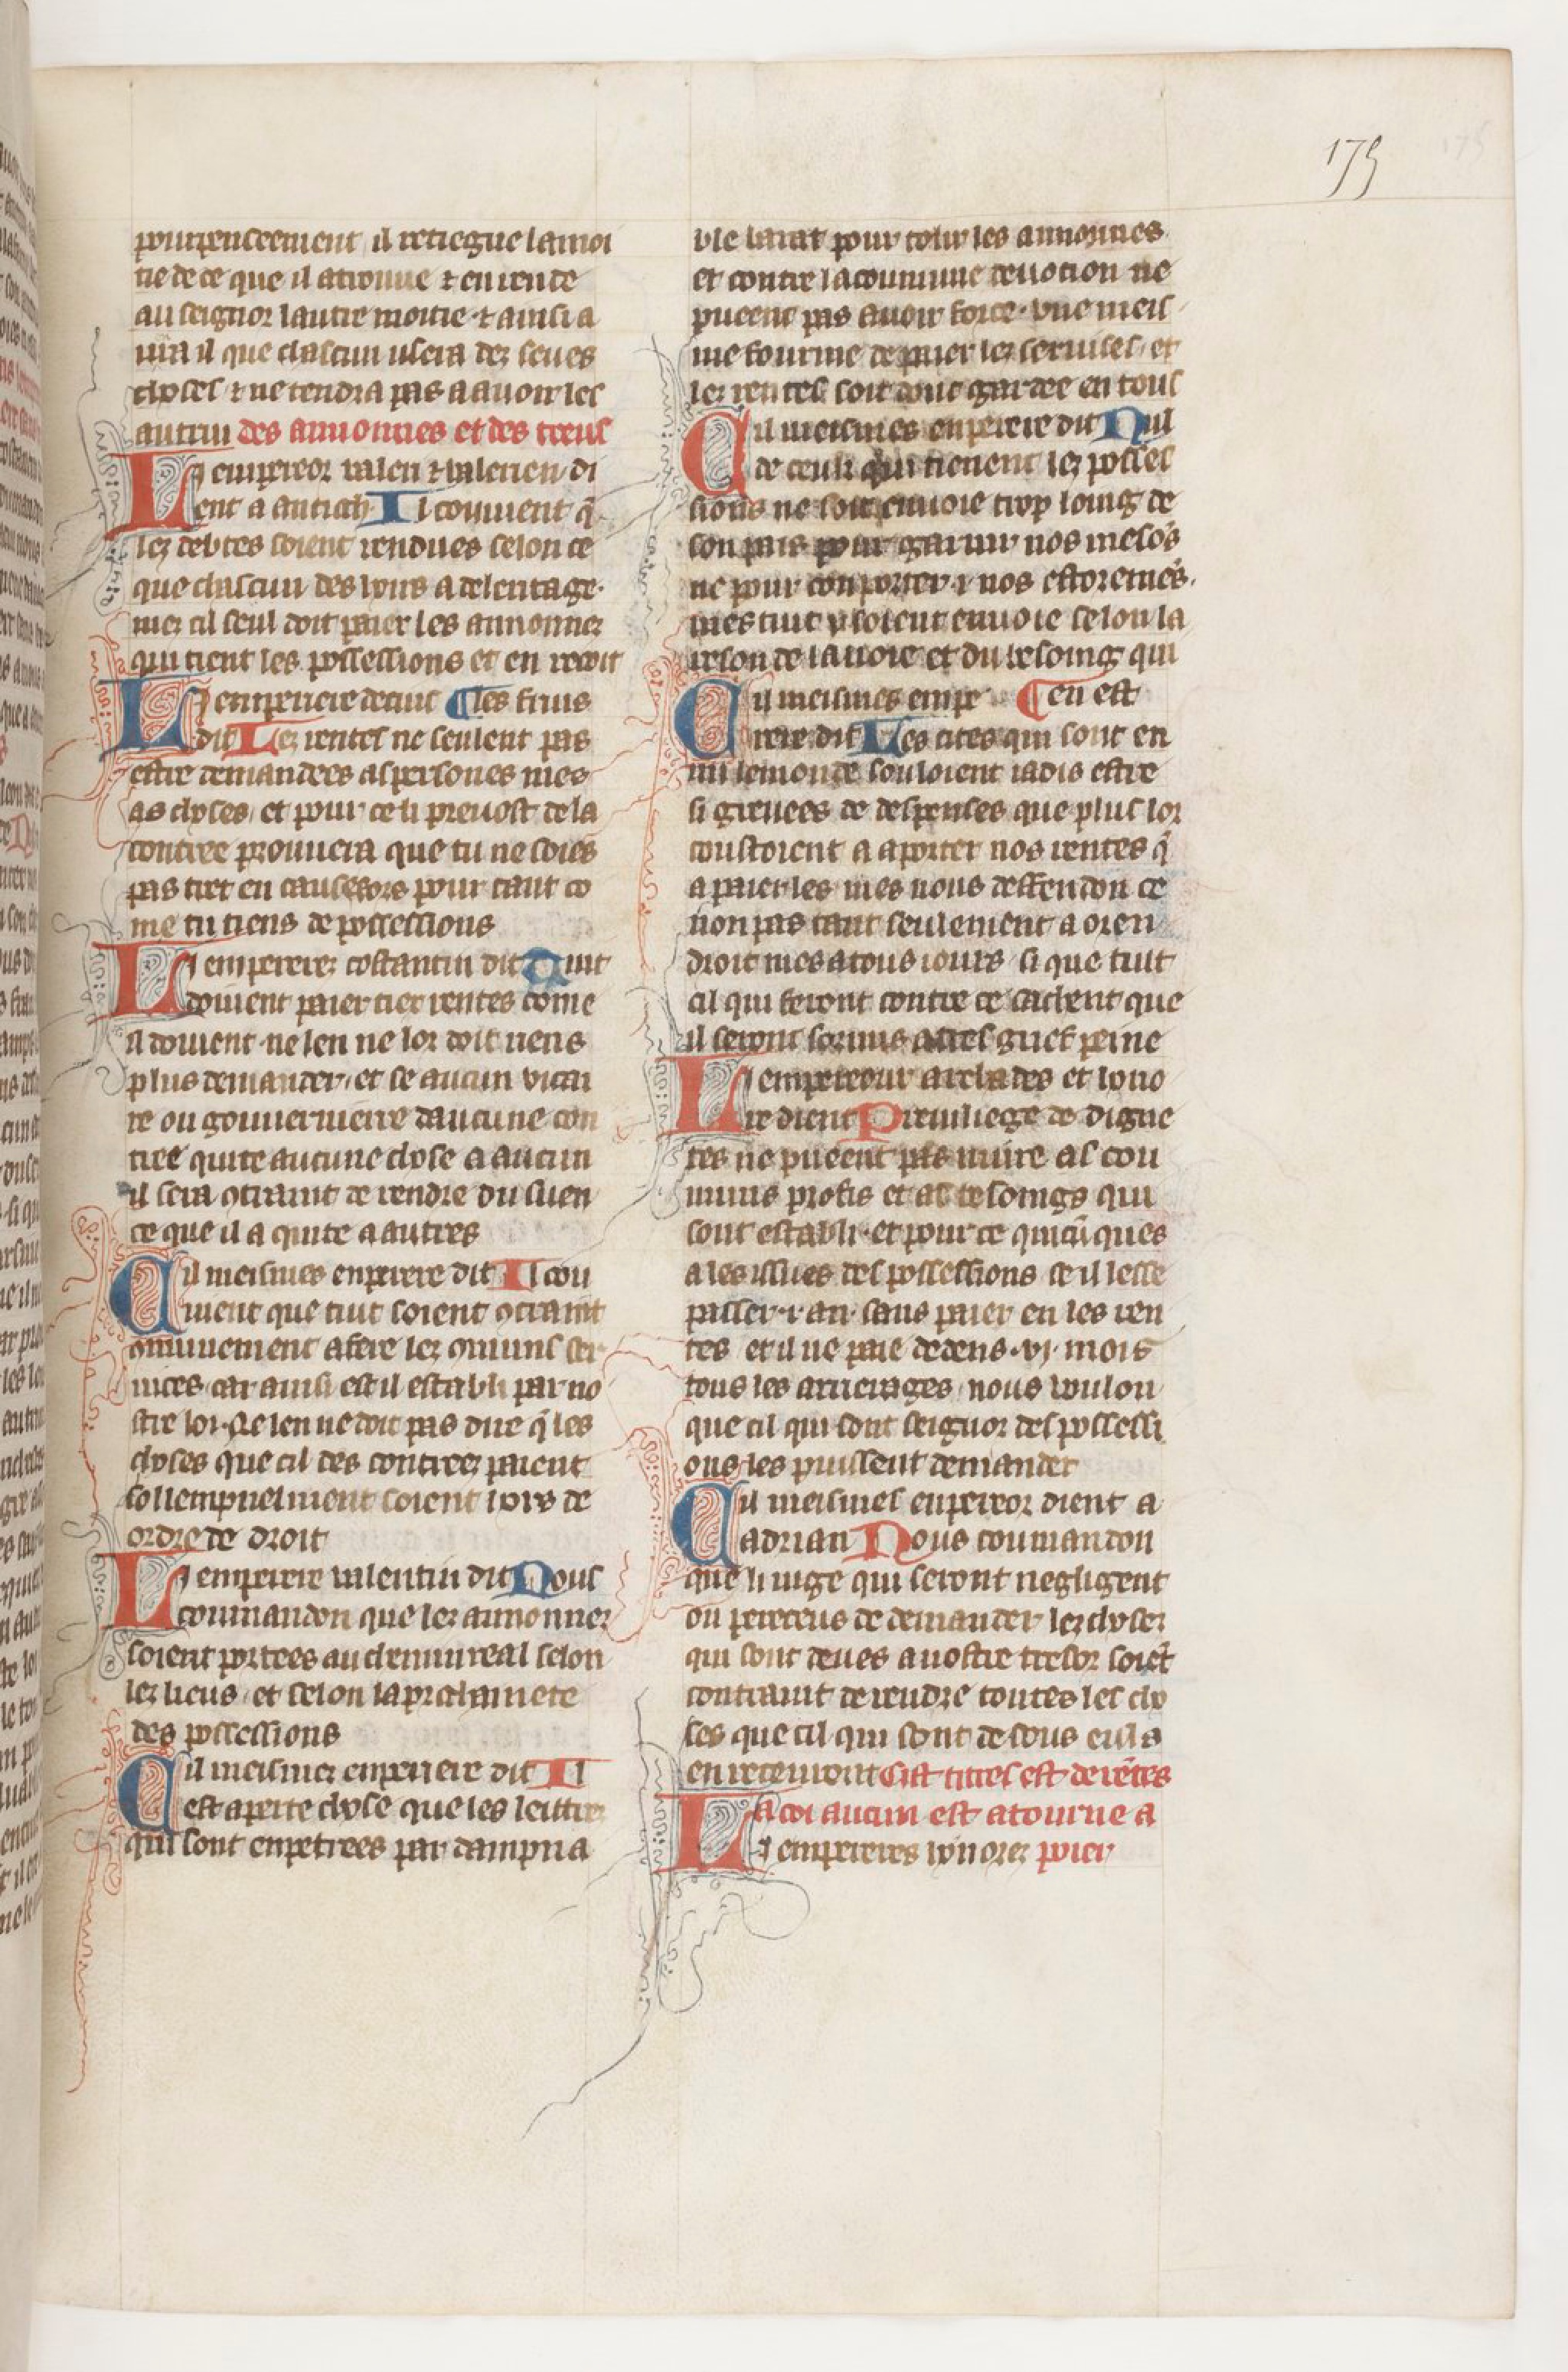 175
pourpenseement il retiegne la moi
tie de ce que il a trouue ⁊ en rende
au seignor lautre moitie ⁊ ainsi a
ura il que chascun usera dez seues
choses ⁊ ne tendra pas a auoir les
autrui des annonnes et des treus
Li empereor valen ⁊ valerien di
ent a antioch Il couuient q̄
lez debtes soient rendues selon ce
que chascun des hoirs a del eritage
mez cil seul doit paier les annonnez
qui tient les possessions et en recoit
Li emperiere ¶ les fruis
dit Lez rentes ne seulent pas
estre demandees as persones mes
as choses et pour ce li preuost de la
contree prouuera que tu ne soies
pas tret en cause fors pour tant co
me tu tiens de possessions
Li empererez costantin dit Tuit
doiuent paier tiex rentes come
il doiuent ne len ne lor doit riens
plus demander et se aucun vicai
re ou gouuerneire daucune con
tree quite aucune chose a aucun
il sera ꝯtraint de rendre du suen
ce que il a quite a autres
Cil meismes emperere dit Il cou
uient que tuit soient ꝯtraint
ꝯmunement a fere lez ꝯmuns ser
uices car ainsi est il establi par no
stre loi Ne len ne doit pas dire q̄ les
choses que cil des contreez paient
sollempnelment soient hors de
ordre de droit
Li emperere valentin dit Nous
coumandon que lez annonnez
soient portees au chemin real selon
lez lieus et selon la prochainete
des possessions
Cil meismez emperiere dit Il
est aperte chose que les leittrez
qui sont enpetrees par dampna
ble barat pour tolir les annonnes
et contre la coumune deuotion ne
pueent pas auoir force vne meis
me fourme de paier lez seruises et
lez rentes soit donc gardee en tous
Cil meismes emperere dit Nul
de ceuls qui tienent lez posses
sions ne soit enuoie trop loing de
son pais pour garnir nos mesōs
ne pour conporter ⁊ nos estoremēs
mes tuit y soient enuoie selon la
reson de la uoie et du besoing qui
Cil meismes empe ¶ en est
rere dit Les cites qui sont en
mi le monde souloient iadis estre
si greuees de despenses que plus lor
coustoient a aporter nos rentes q̄
a paier les mes nous deffendon ce
non pas tant seulement a oren
droit mes a tous iours si que tuit
cil qui feront contre ce sachent que
il seront sormis a tres grief peine
Li empereour archades et hono
re dient Preuilege de digne
tes ne pueent pas nuire as cou
muns profis et as besoings qui
sont establi et pour ce quicūques
a les issues des possessions se il lesse
passer .i. an sans paier en les ren
tes et il ne paie dedens .vj. mois
tous les arrierages nous voulon
que cil qui sont seignor des possessi
ons les puissent demander
Cil meismes empereor dient a
adrian Nous coumandon
que li iuge qui seront negligent
ou pereceus de demander lez chosez
qui sont deues a nostre tresor soiēt
contraint de rendre toutes les cho
ses que cil qui sont de sous euls
en receuront Cist titres est de rētes
La coi aucun est atourne a
Li empereres honorez poier